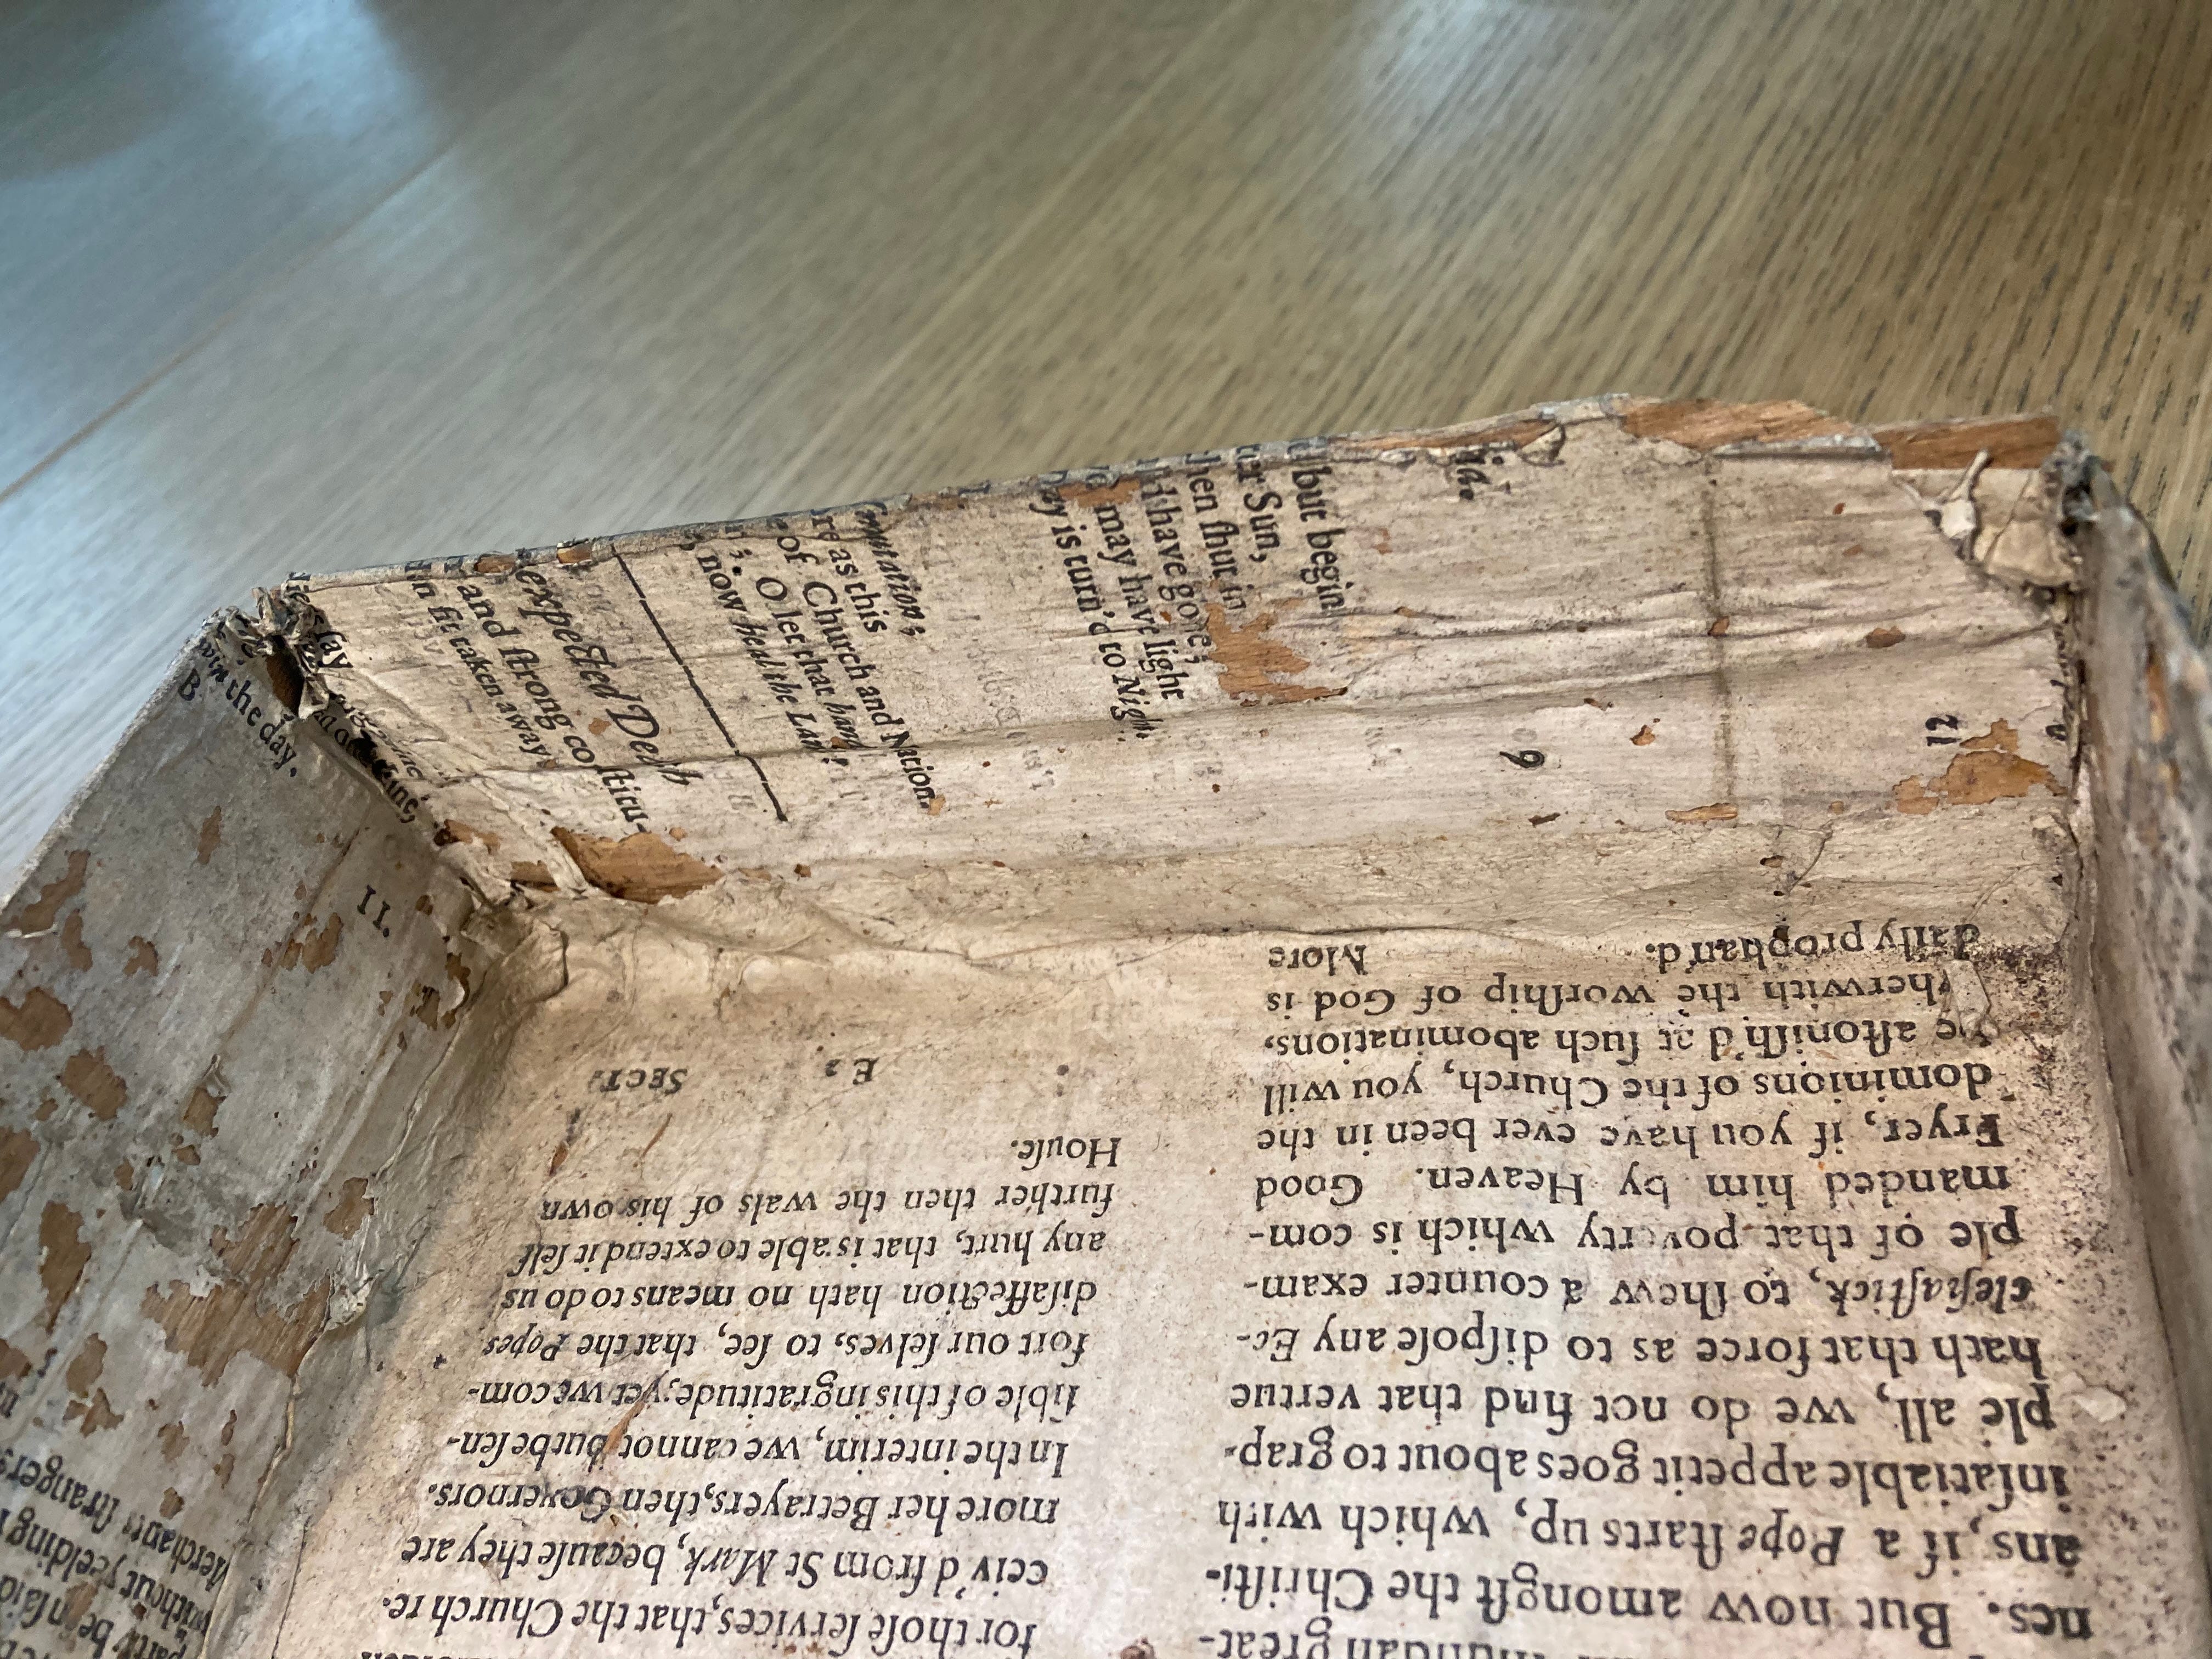 mundan great-
nes. But now amongſt the Chriſti-
ans, if a Pope ſtarts up, which with
inſatiable appetit goes about to grap-
ple all, we do not find that vertue
hath that force as to diſpoſe any Ec-
cleſiaſtick, to ſhew a counter exam-
ple of that poverty which is com-
manded him by Heaven. Good
Fryer, if you have ever been in the
dominions of the Church, you will
be aſtoniſh'd at ſuch abominations,
wherwith the worſhip of God is
daily prophan'd.
More
for thoſe ſervices, that the Church re-
ceiv'd from St Mark, becauſe they are
more her Betrayers, then Governors.
In the interim, we cannot but be ſen-
ſible of this ingratitude; yet we com-
fort our ſelves, to ſee, that the Popes
diſaffection hath no means to do us
any hurt, that is able to extend it ſelf
further then the wals of his own
Houſe.
E 2
SECT.
but begin
Sun,
then ſhut in
have gone,
may have light
is turn'd to Night.
as this
of Church and Nation.
O let that hand
now heal the Land!
expected Death
and ſtrong conſtitu-
fit taken away
6
21
the day.
B
II.
ſtrangers
Merchants
without yeelding
party
ſaid